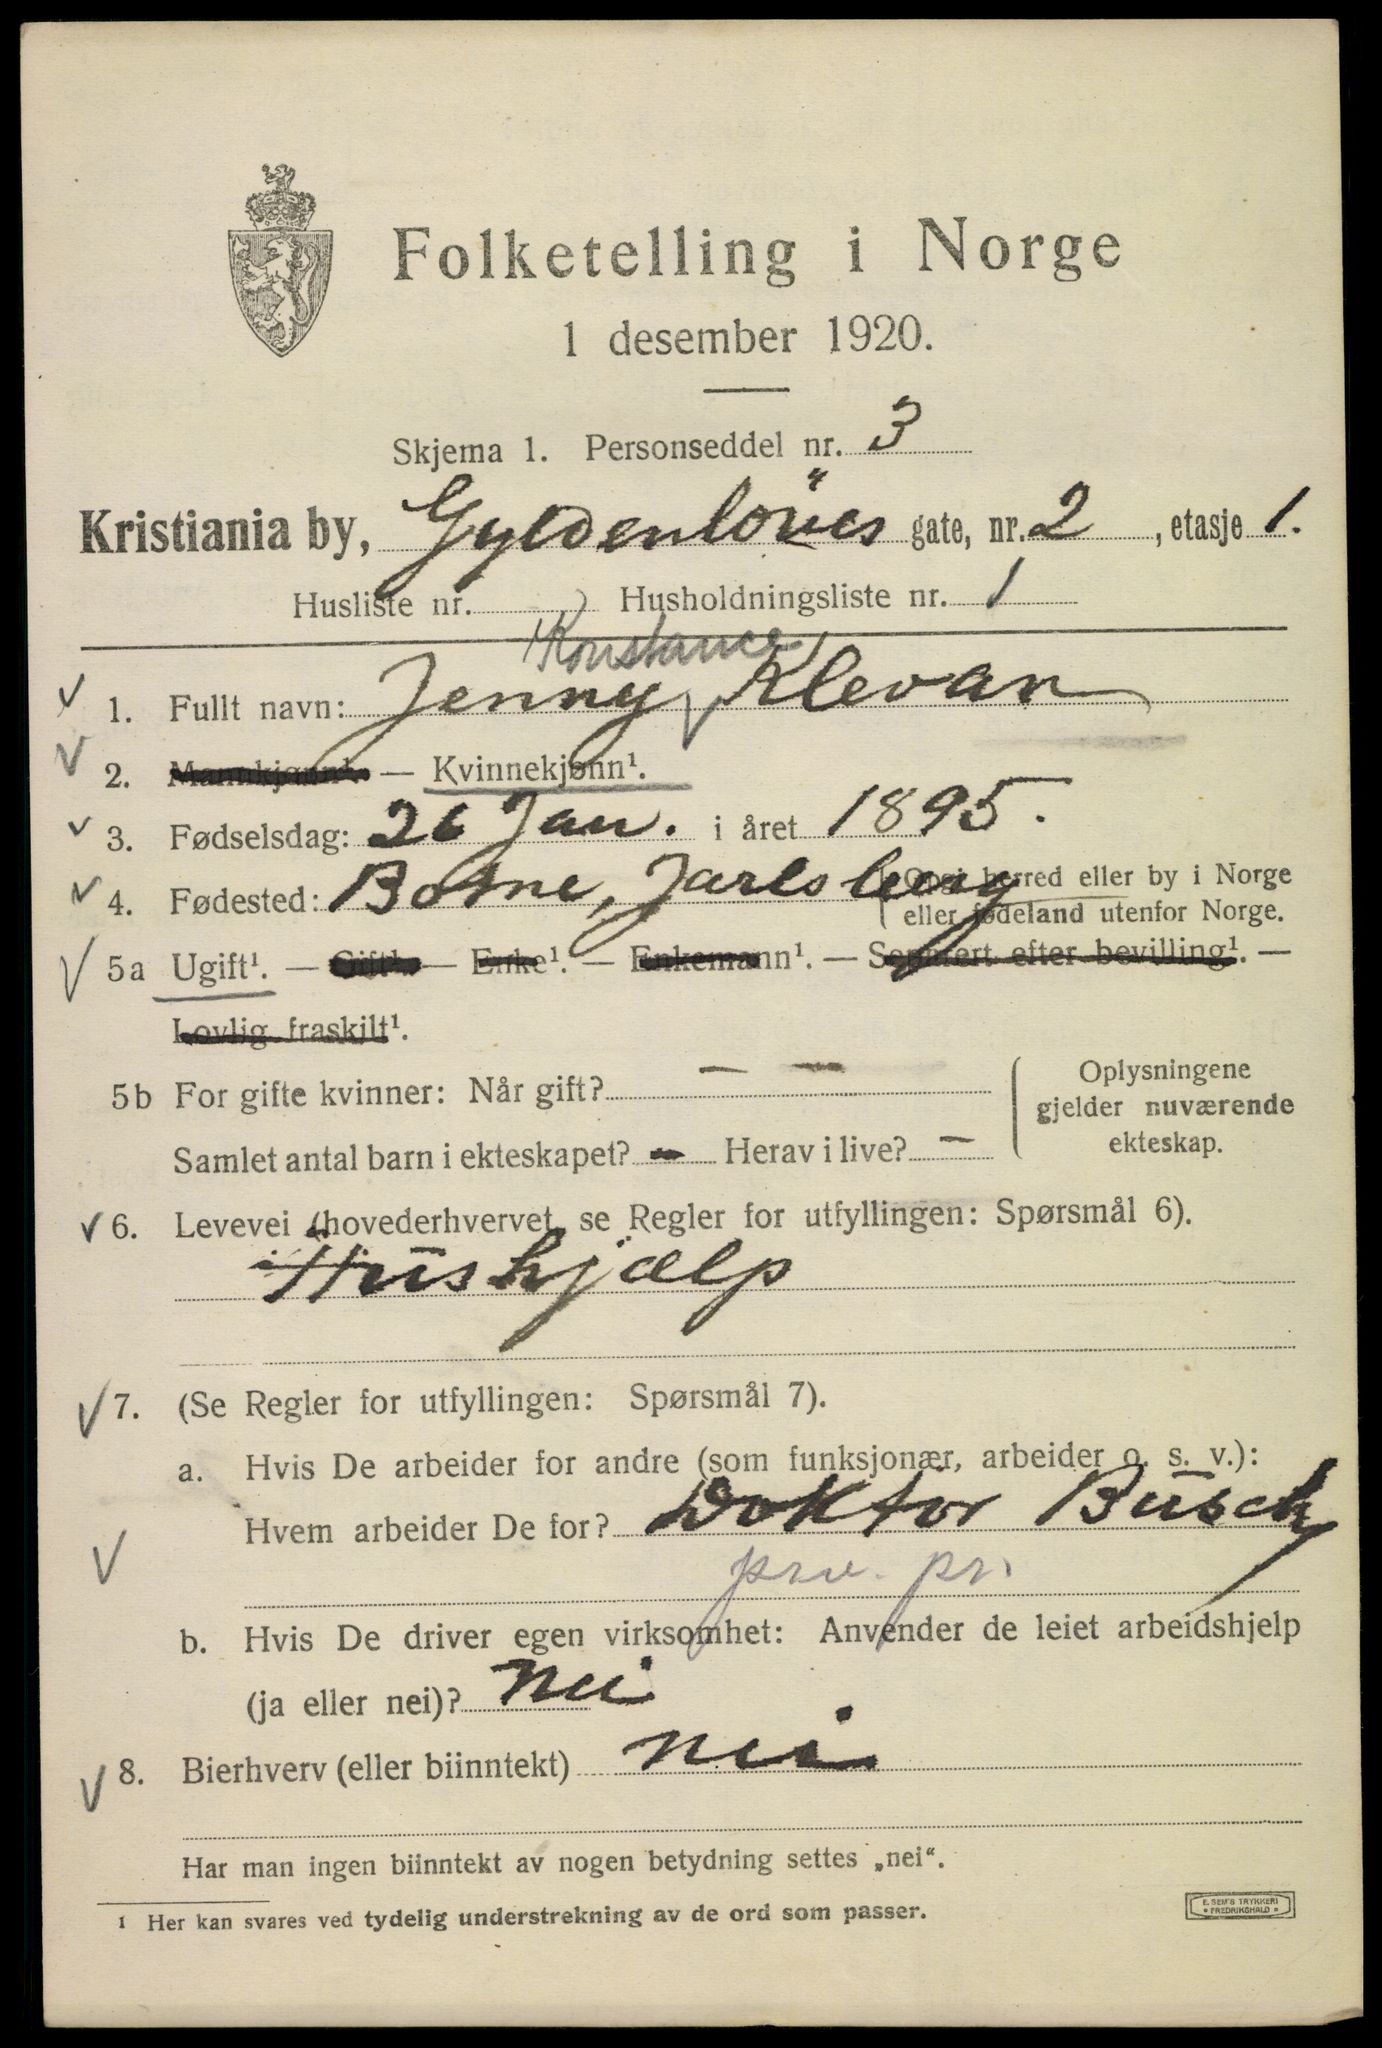 Folketelling i Norge
1 desember 1920.
Skjema 1. Personseddel nr. 3
Kristiania by, Gyldenlöves gate, nr. 2, etasje 1.
Husliste nr. Husholdningsliste nr. 1
Konstance
1. Fullt navn: Jenny Klevan
2. Mannkjønn¹. — Kvinnekjønn¹.
3. Fødselsdag: 26 Jan. i året 1895.
4. Fødested: Borre, Jarlsberg Opgi herred eller by i Norge
eller fødeland utenfor Norge.
5a Ugift¹. — Gift¹. — Enke¹. — Enkemann¹. — Separert efter bevilling¹. —
Lovlig fraskilt¹.
5b For gifte kvinner: Når gift? —
Oplysningene
gjelder nuværende
ekteskap.
Samlet antal barn i ekteskapet? — Herav i live? —
6. Levevei (hovederhvervet, se Regler for utfyllingen: Spørsmål 6).
Hushjælp
7. (Se Regler for utfyllingen: Spørsmål 7).
a. Hvis De arbeider for andre (som funksjonær, arbeider o. s. v.):
Hvem arbeider De for? Doktor Busch
prv. pr.
b. Hvis De driver egen virksomhet: Anvender de leiet arbeidshjelp
(ja eller nei)? Nei
8. Bierhverv (eller biinntekt) nei
Har man ingen biinntekt av nogen betydning settes „nei“.
¹ Her kan svares ved tydelig understrekning av de ord som passer.
E. SEM'S TRYKKERI
FREDRIKSHALD